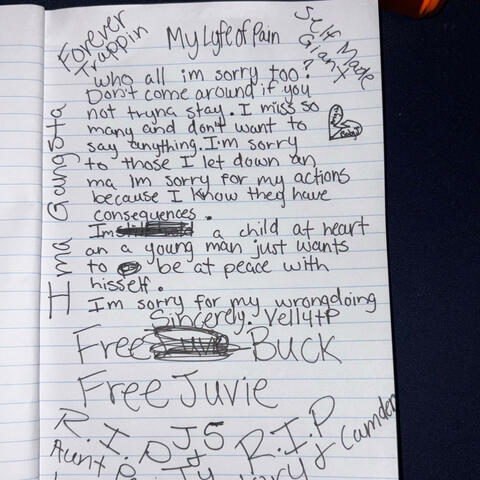 Forever
Trappin
My Lyfe of Pain
Self Made
Giant
who all im sorry too?
Don't come around if you
not tryna stay. I miss so
many and don't want to
say anything. I'm sorry
to those I let down an
ma im sorry for my actions
because I know they have
consequences.
Im a child at heart
an a young man just wants
to be at peace with
hisself.
Im sorry for my wrongdoing
Sincerely. Velly+P
Ima GangSta
Free Buck
Free Juvie
R.I.P J5
Aunt
R.I.P
Camden